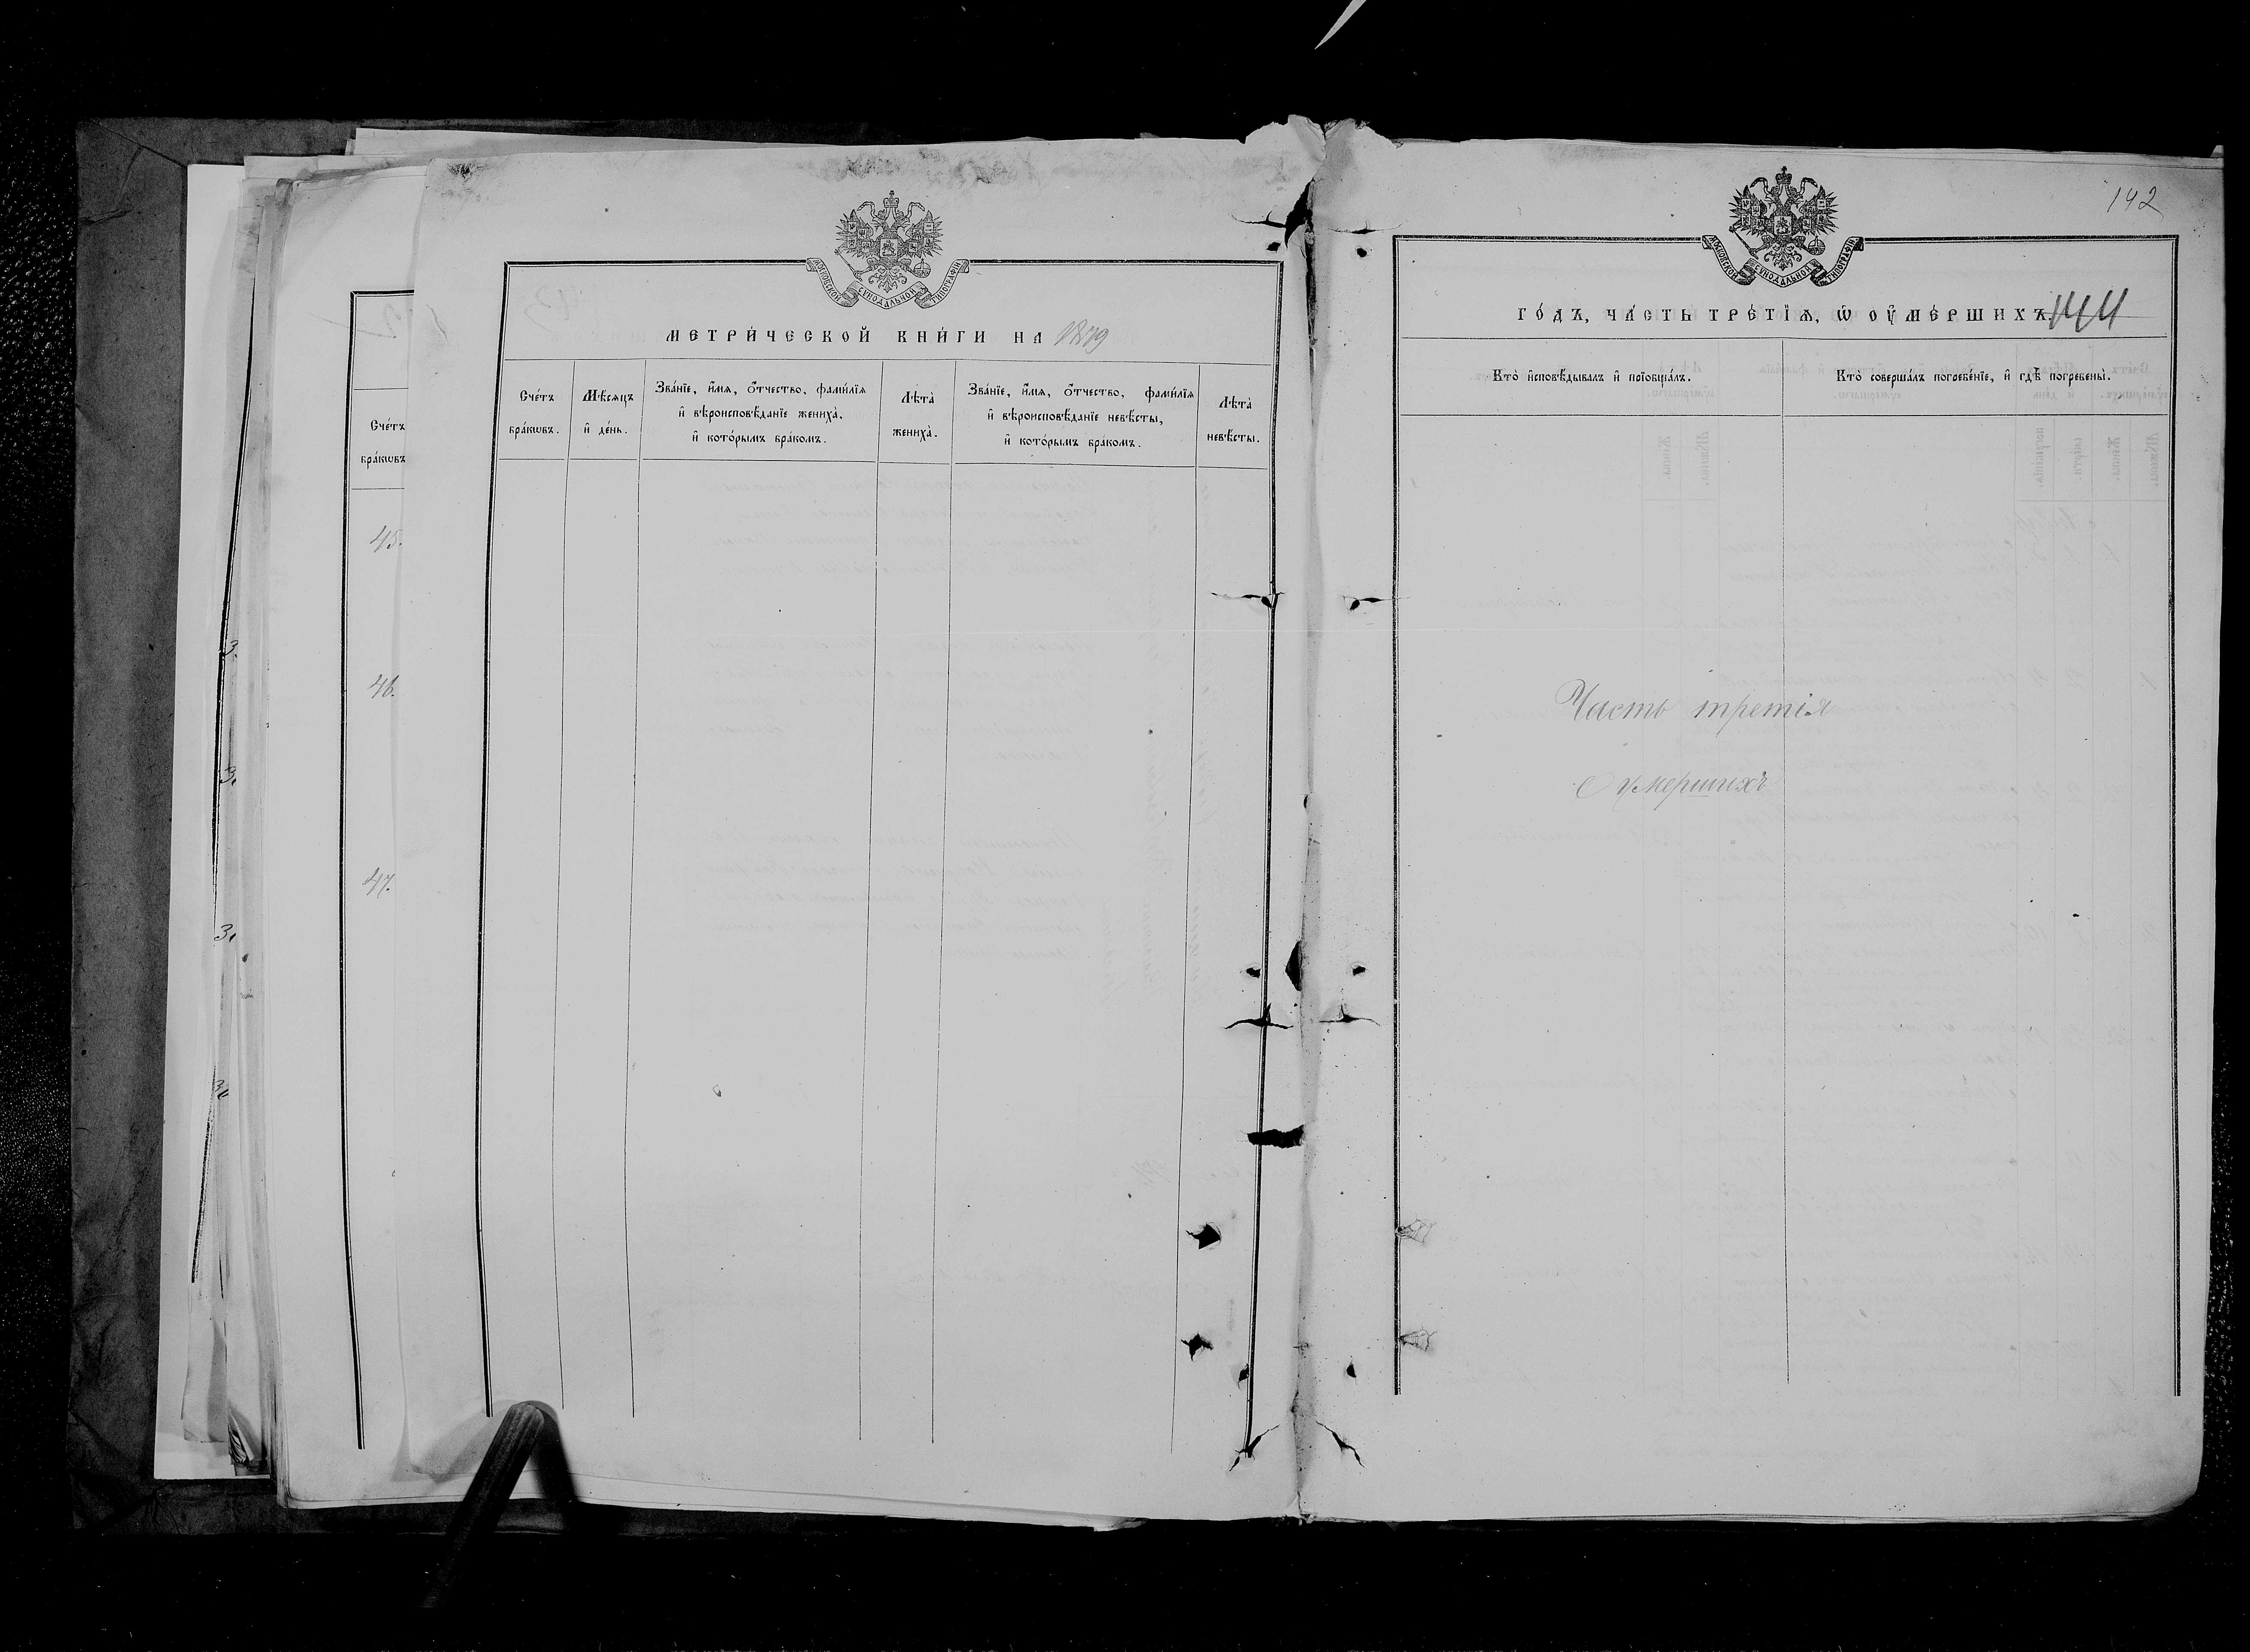 МОСКОВСКОЙ СУНОДАЛЬНОЙ ТИПОГРАФІИ
МЕТРИ́ЧЕСКОЙ КНИ́ГИ НА 1879
Сче́тъ бра́кѡвъ.
Мѣ́сѧцъ и҆ де́нь.
Зва́нїе, и҆́мѧ, ѻ҆́тчество, фами́лїѧ
и҆ вѣроисповѣ́данїе жениха̀,
и҆ кото́рымъ бра́комъ.
Лѣта̀ жениха̀.
Зва́нїе, и҆́мѧ, ѻ҆́тчество, фами́лїѧ
и҆ вѣроисповѣ́данїе невѣ́сты,
и҆ кото́рымъ бра́комъ.
Лѣта̀ невѣ́сты.
Сче́тъ
бра́кѡвъ
45.
46.
47.
142
МОСКОВСКОЙ СУНОДАЛЬНОЙ ТИПОГРАФІИ
ГО́ДЪ, ЧА́СТЬ ТРЕ́ТЇѦ, Ѡ҆ ОУ҆МЕ́РШИХЪ. 144
Кто̀ и҆сповѣ́дывалъ и҆ прїобща́лъ.
Кто̀ соверша́лъ погребе́нїе, и҆ гдѣ̀ погребены̀.
Часть третія
О умершихъ